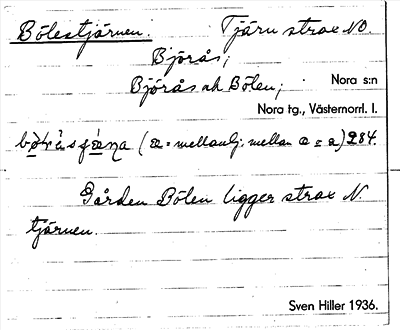 Bölestjärnen. Tjärn strax NO.
Björås;
Björås och Bölen; Nora s:n
Nora tg., Västernorrl. l.
(æ = mellanlj. mellan æ o. a) 284.
Gården Bölen ligger strax N.
tjärnen.
Sven Hiller 1936.